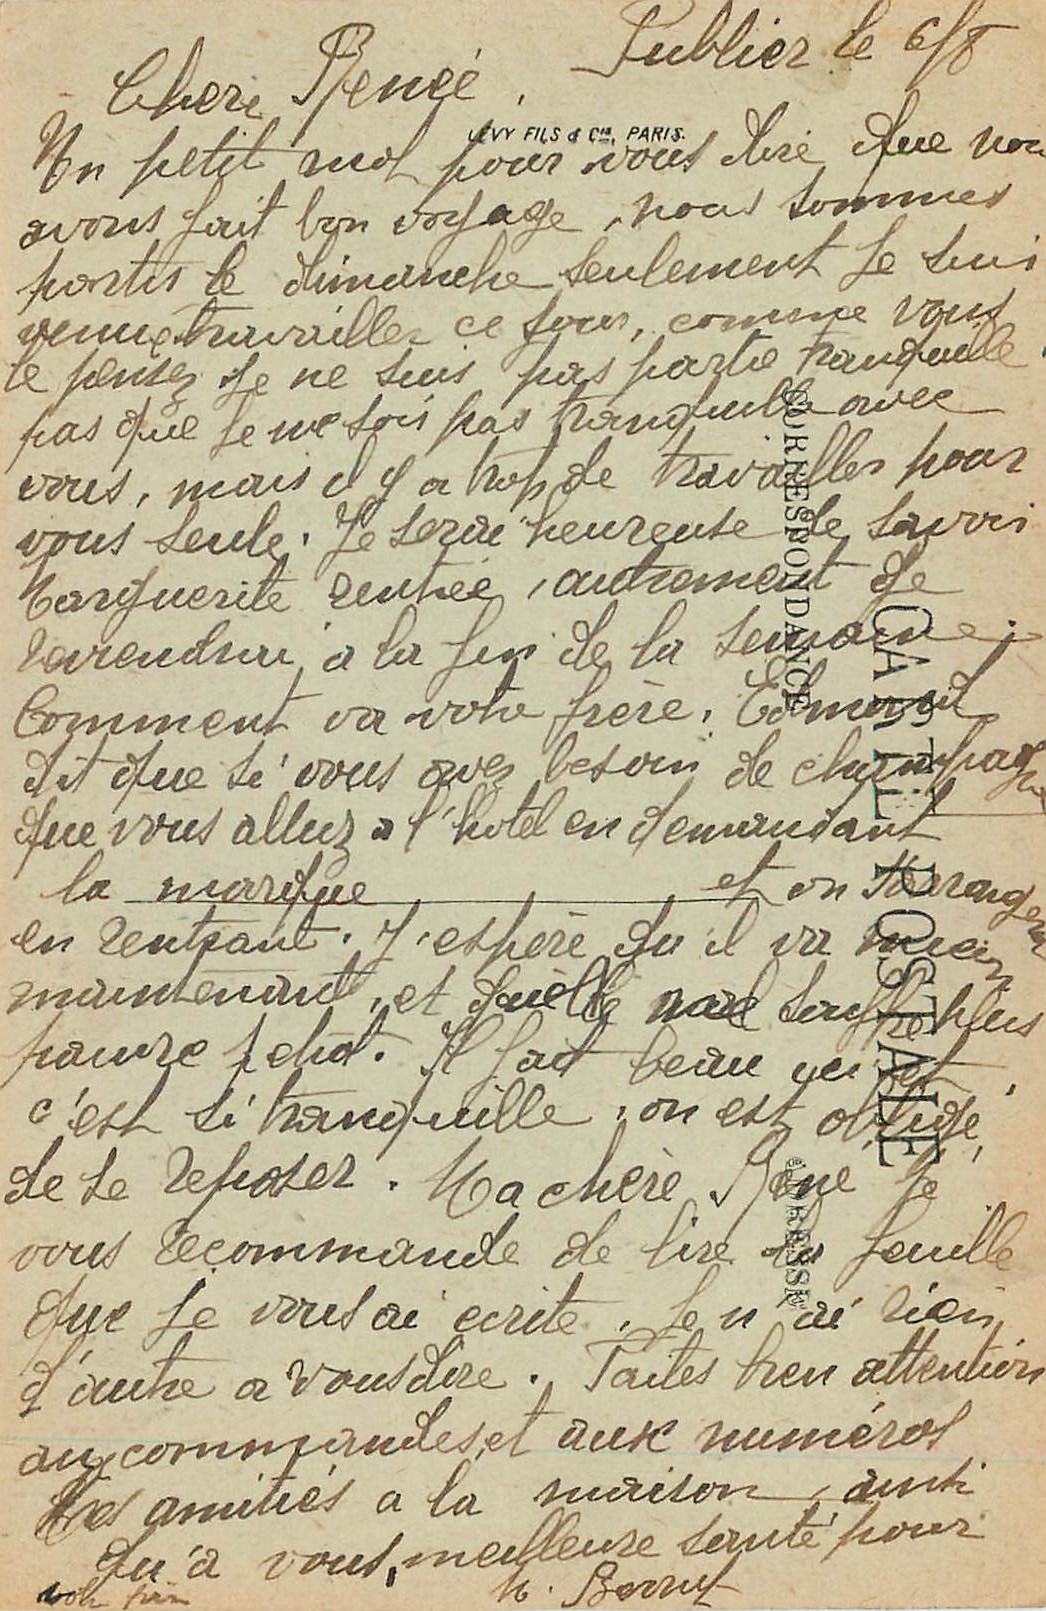 Publier le 6/8
Cheri Renée,
LEVY FILS & Cie, PARIS.
Un petit mot pour vous dire que nous
avons fait bon voyage, nous sommes
partis le dimanche seulement je suis
venue travailler ce jour, comme vous
le pensez je ne suis pas partie tranquille
pas que je ne sois pas tranquille avec
vous, mais il y a trop de travailler pour
vous seule. Je serai heureuse de savoir
Marguerite rentrée, autrement je
reviendrai a la fin de la semaine.
Comment va votre frère, Edmond
dit que si vous avez besoin de champagne
que vous alliez a l'hotel en demandant
la marque et on s'arrangera
en rentrant. J'espère qu'il va mieux
maintenant, et souffre plus
pauvre petiot. Il fait beau ici et
c'est si tranquille, on est obligé,
de se reposer. Ma chère René je
vous recommande de lire la feuille
que je vous ai ecrite. Je n'ai rien
d'autre a vous dire. Faites bien attention
aux commandes, et aux numéros
Mes amitiés a la maison, ainsi
qu'à vous, meilleure santé pour
votre
CORRESPONDANCE
CARTE POSTALE
ADRESSE